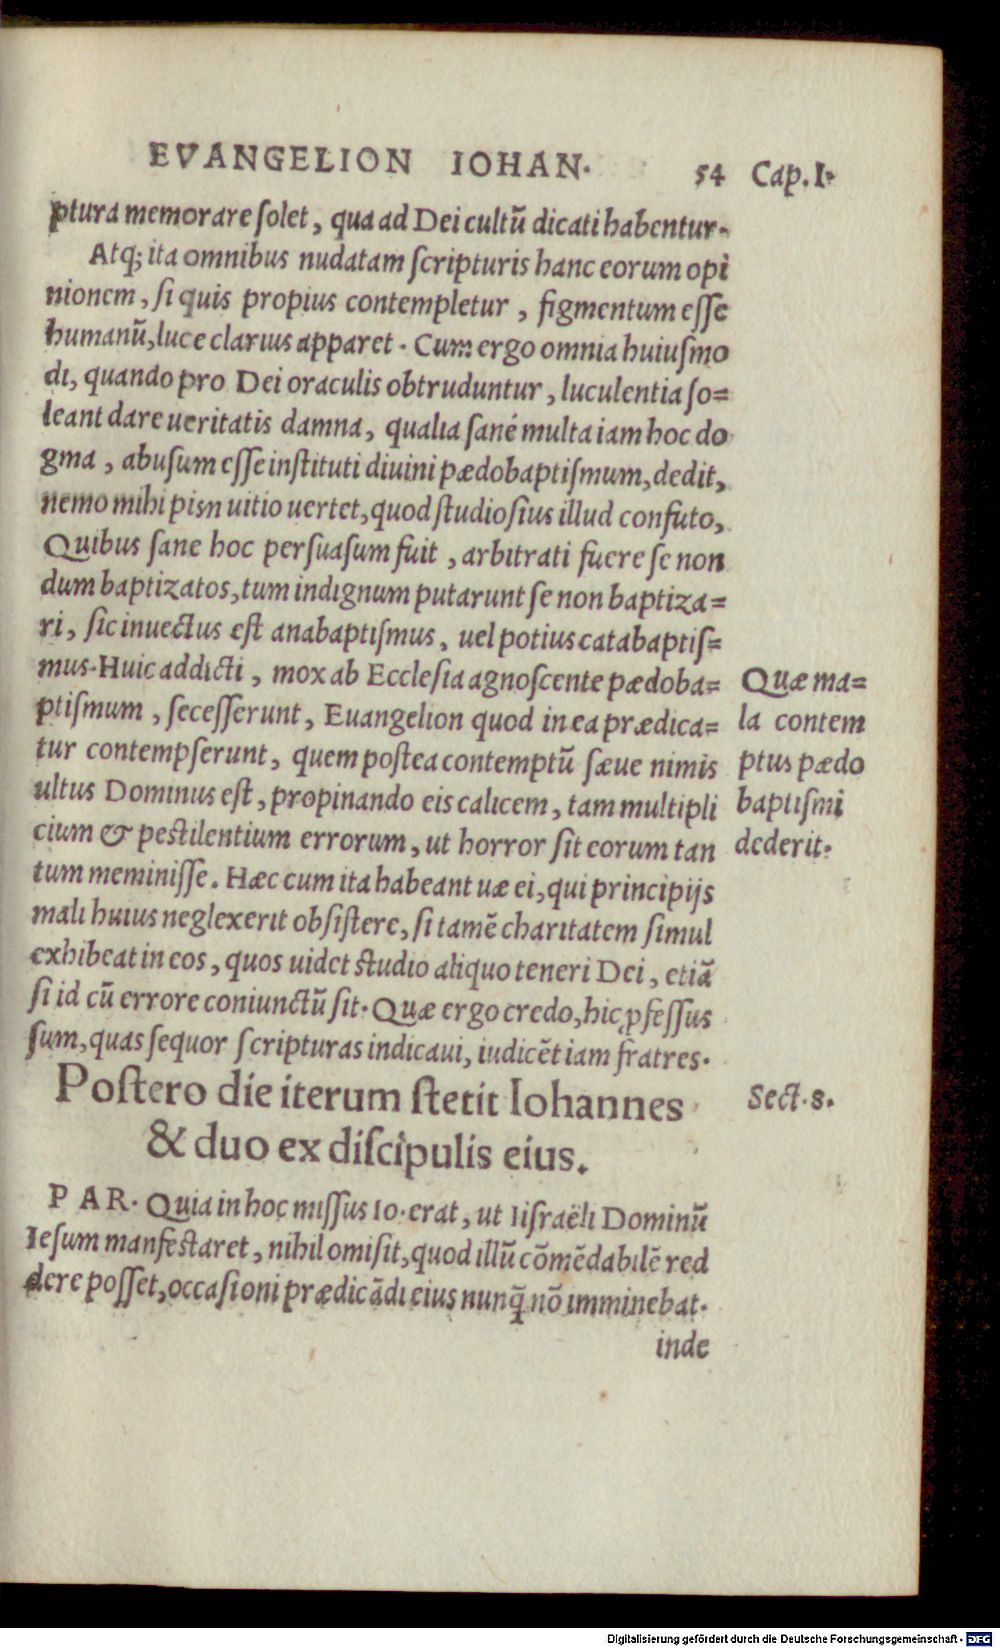 EVANGELION IOHAN. 54 Cap. I.
ptura memorare ſolet, qua ad Dei cultũ dicati habentur.
Atq; ita omnibus nudatam ſcripturis hanc eorum opi
nionem, ſi quis propius contempletur, figmentum eſſe
humanũ, luce clarius apparet. Cum ergo omnia huiuſmo
di, quando pro Dei oraculis obtruduntur, luculentia ſo=
leant dare ueritatis damna, qualia ſané multa iam hoc do
gma, abuſum eſſe inſtituti diuini pædobaptiſmum, dedit,
nemo mihi pisn uitio uertet, quod ſtudioſius illud confuto,
Quibus ſane hoc perſuaſum fuit, arbitrati fuere ſe non
dum baptizatos, tum indignum putarunt ſe non baptiza=
ri, ſic inuectus eſt anabaptiſmus, uel potius catabaptiſ=
mus. Huic addicti, mox ab Eccleſia agnoſcente pædoba=
ptiſmum, ſeceſſerunt, Euangelion quod in ea prædica=
tur contempſerunt, quem poſtea contemptũ ſæue nimis
ultus Dominus eſt, propinando eis calicem, tam multipli
cium & peſtilentium errorum, ut horror ſit eorum tan
tum meminiſſe. Hæc cum ita habeant uæ ei, qui principijs
mali huius neglexerit obſiſtere, ſi tamẽ charitatem ſimul
exhibeat in eos, quos uidet ſtudio aliquo teneri Dei, etiã
ſi id cũ errore coniunctũ ſit. Quæ ergo credo, hic ꝓfeſſus
ſum, quas ſequor ſcripturas indicaui, iudicẽt iam fr̃atres.
Quæ ma=
la contem
ptus pædo
baptiſmi
dederit.
Poſtero die iterum ſtetit Iohannes
& duo ex diſcipulis eius.
Sect. 8.
PAR. Quia in hoc miſſus Io. erat, ut Iiſraëli Dominũ
Ieſum manfeſtaret, nihil omiſit, quod illũ cõmẽdabilẽ red
dere poſſet, occaſioni prædicãdi eius nunq̃ nõ imminebat.
inde
Digitalisierung gefördert durch die Deutsche Forschungsgemeinschaft - DFG